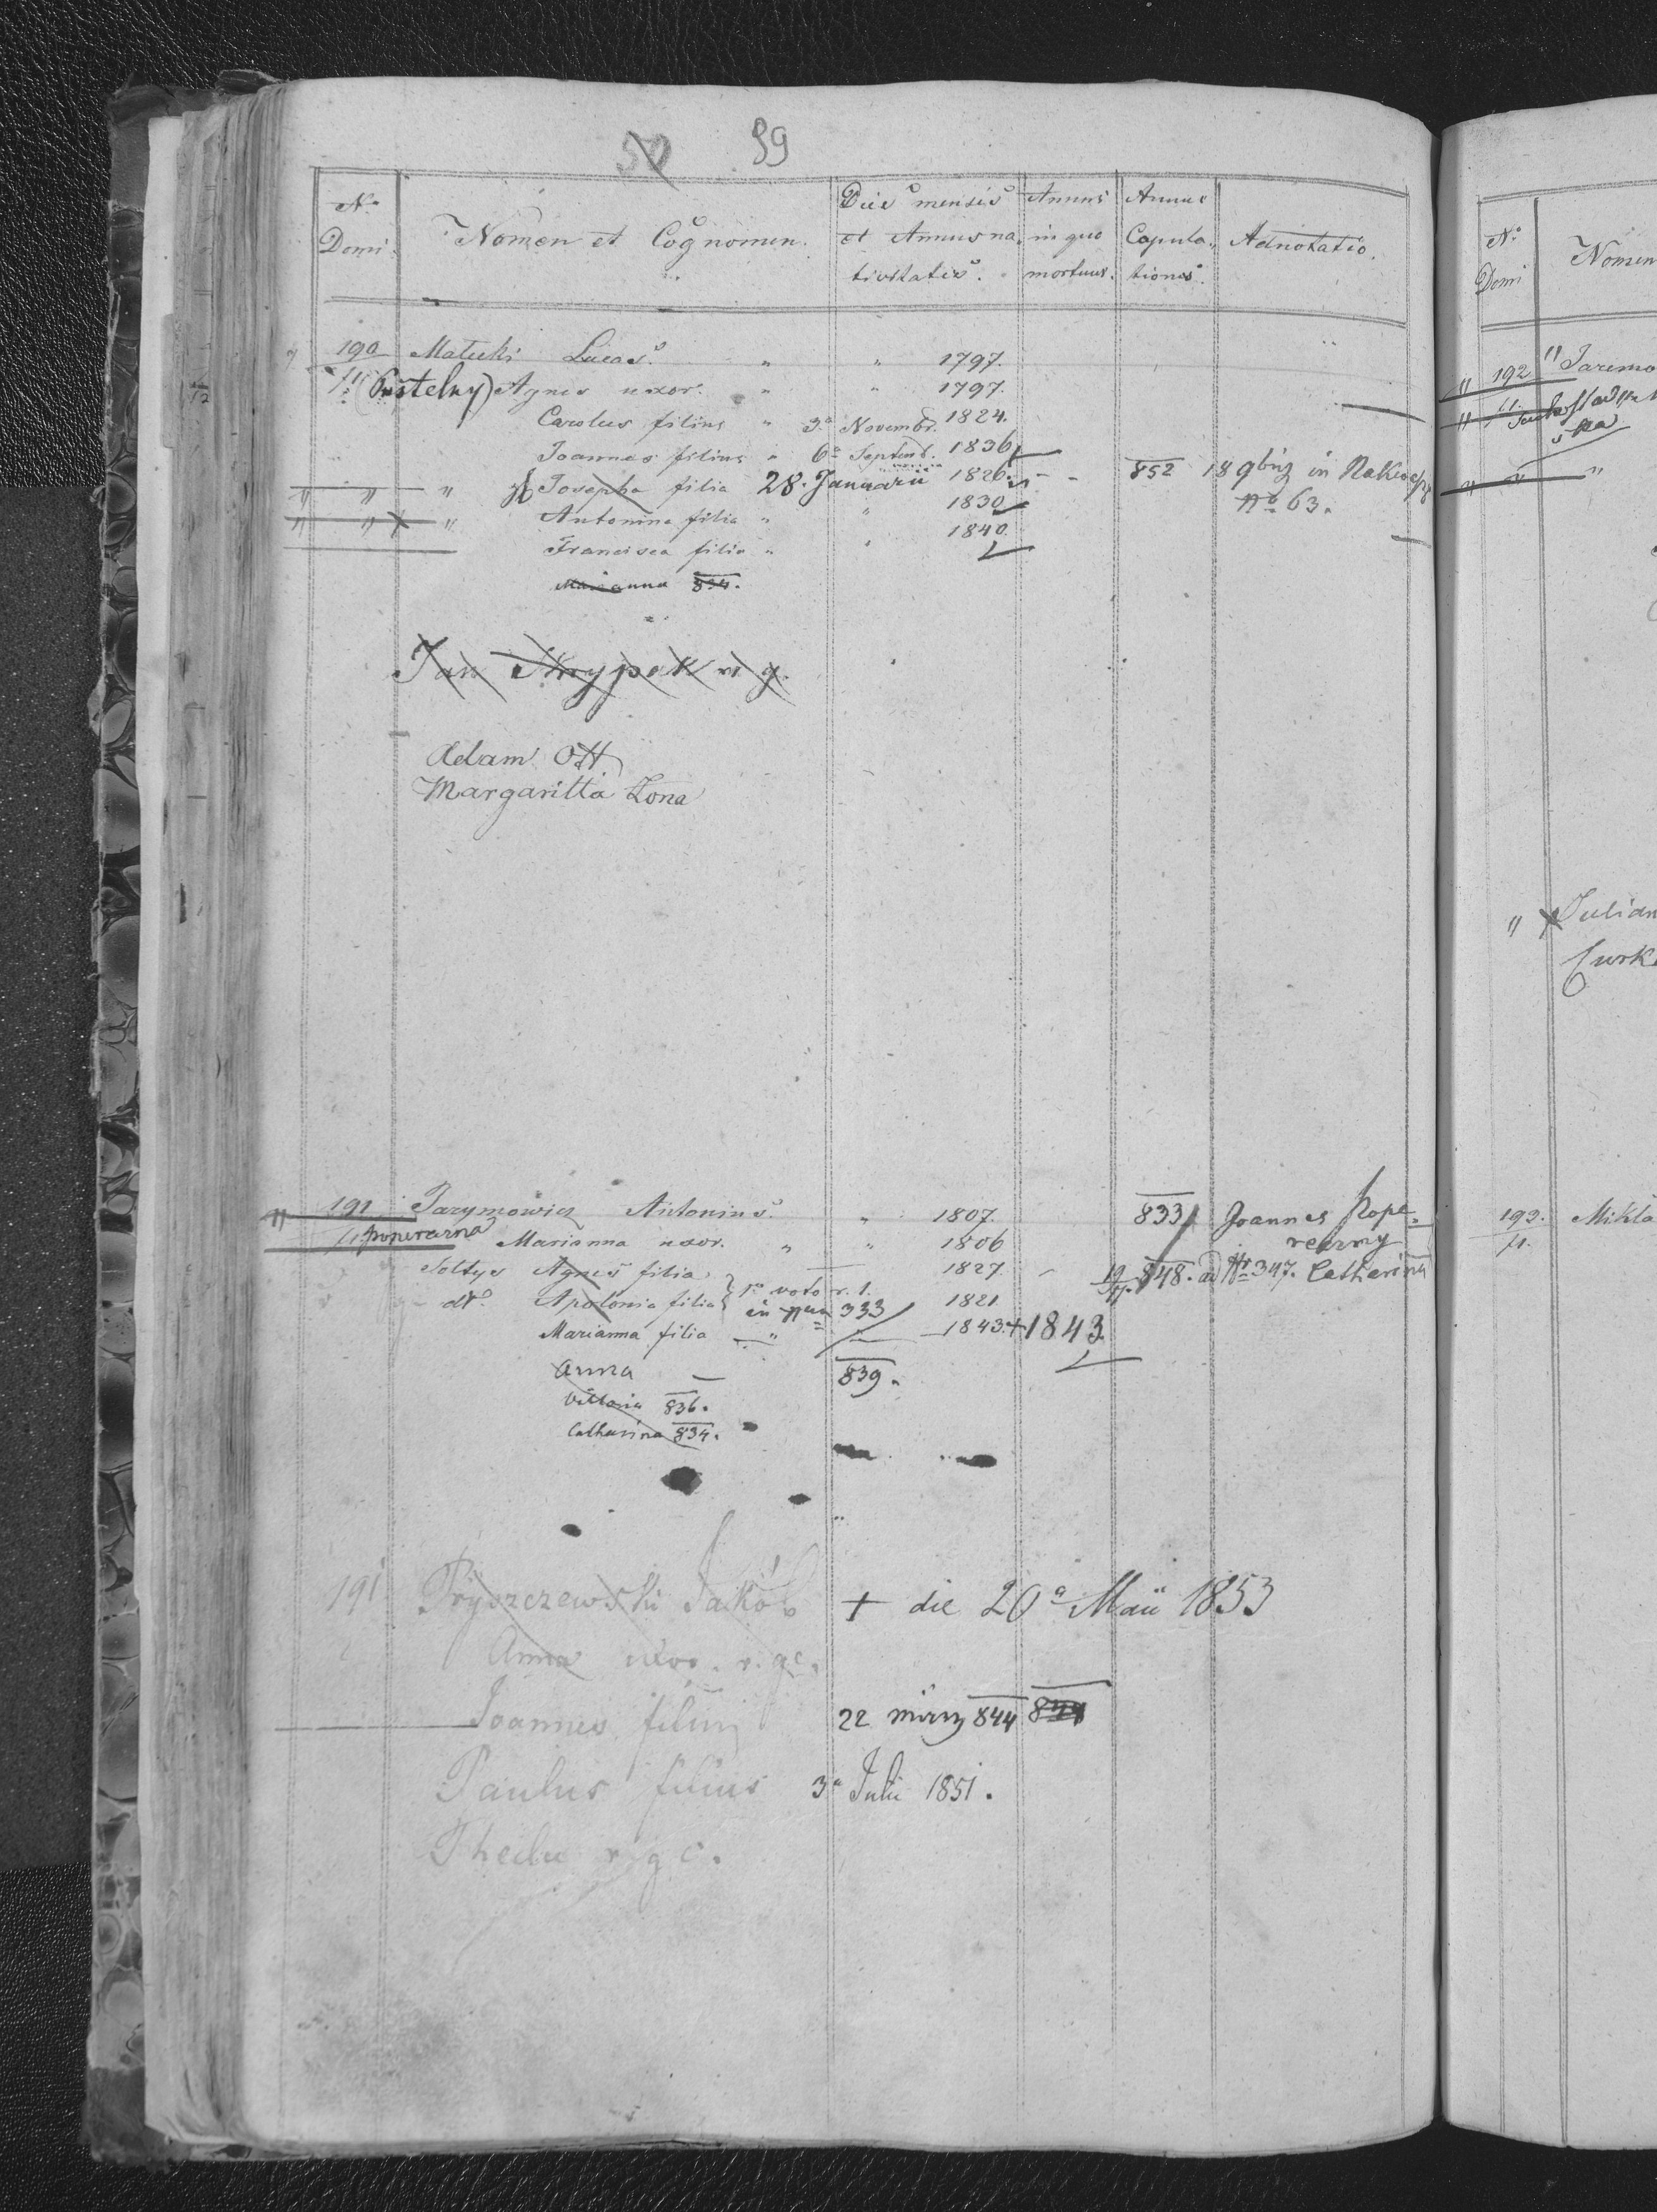 59
No Domi.
Nomen et Cognomen.
Dies mensis et Annus nativitatis.
Annus in quo mortuus.
Annus Copulationis.
Adnotatio.
190 Matuki Lucas. " " 1797.
(Pustelny) Agnes uxor. " " 1797.
Carolus filius " 3a Novembr. 1824.
Joannes filius " 6a Septemb. 1836
" " " Josepha filia 28. Januarii 1826. - - 852 18 9bris in
Antonina filia " " 1830 No 63.
Francisca filia " " 1840.
Marianna 834.
Jan
Adam Ott
Margaritta Zona
" 191 Parymowicz Antonius. " 1807. 833 Joannes Pope-
Marianna uxor. " " 1806 rearny
Soltys Agnes filia 1827 - 848. ad Nr 347. Catharina
dto. Apolonia filia 1o voto r. l. 1821
in 333
Marianna filia - " 1843. + 1843
Anna - 839.
Victoria 836.
Catharina 834.
191 Pryszczewski Jakób + die 20a Maii 1853
Anna uxor. r. gc.
Joannes filius 22 März 844 844
Paulus filius 3a Julii 1851.
Thecla r. g c.
No Domi
Nomen
" 192 " Jaremo
"
" Julian
193. Mikla